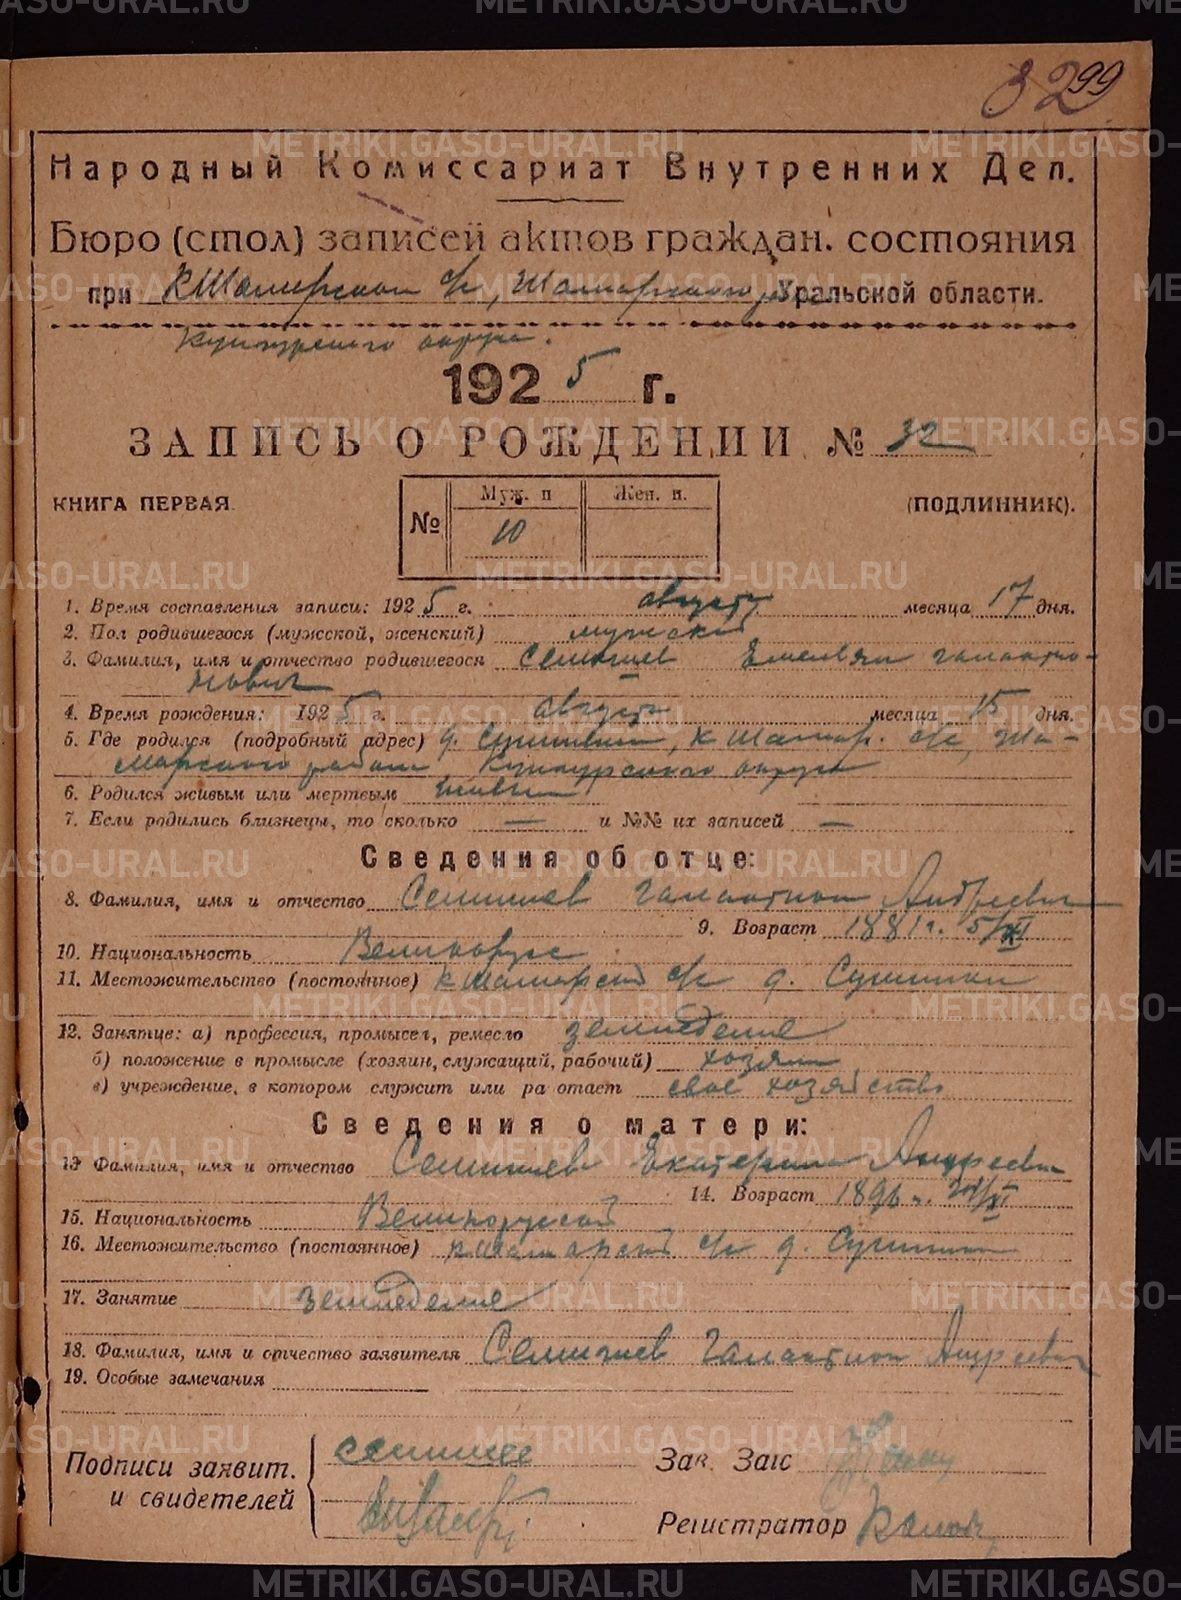 32 99
Народный Комиссариат Внутренних Дел.
Бюро (стол) записей актов граждан. состояния
при КШамарском с/с, Шамарского Уральской области.
Кунгурского округа.
1925 г.
ЗАПИСЬ О РОЖДЕНИИ № 32
КНИГА ПЕРВАЯ. № Муж. п 10 Жен. п. (ПОДЛИННИК).
1. Время составления записи: 1925 г. август месяца 17 дня.
2. Пол родившегося (мужской, женский) мужской
3. Фамилия, имя и отчество родившегося Емельян Галактио-
нович
4. Время рождения: 1925 г. августа месяца 15 дня.
5. Где родился (подробный адрес) д. К Шамар. с/с, Ша-
марского района Кунгурского округа
6. Родился живым или мертвым живым
7. Если родились близнецы, то сколько — и №№ их записей —
Сведения об отце:
8. Фамилия, имя и отчество Галактион Андреевич
9. Возраст 1881 г. 5/XI
10. Национальность Великорус
11. Местожительство (постоянное) К Шамарский с/с д.
12. Занятие: а) профессия, промысел, ремесло земледелие
б) положение в промысле (хозяин, служащий, рабочий) хозяин
в) учреждение, в котором служит или ра отает свое хозяйство
Сведения о матери:
13 Фамилия, имя и отчество Екатерина Андреевн
14. Возраст 1896 г.
15. Национальность Великорусской
16. Местожительство (постоянное) К Шамарский с/с д.
17. Занятие земледелие
18. Фамилия, имя и отчество заявителя Галактион Андреевич
19. Особые замечания
Подписи заявит. Зав. Загс
и свидетелей
Регистратор
METRIKI.GASO-URAL.RU